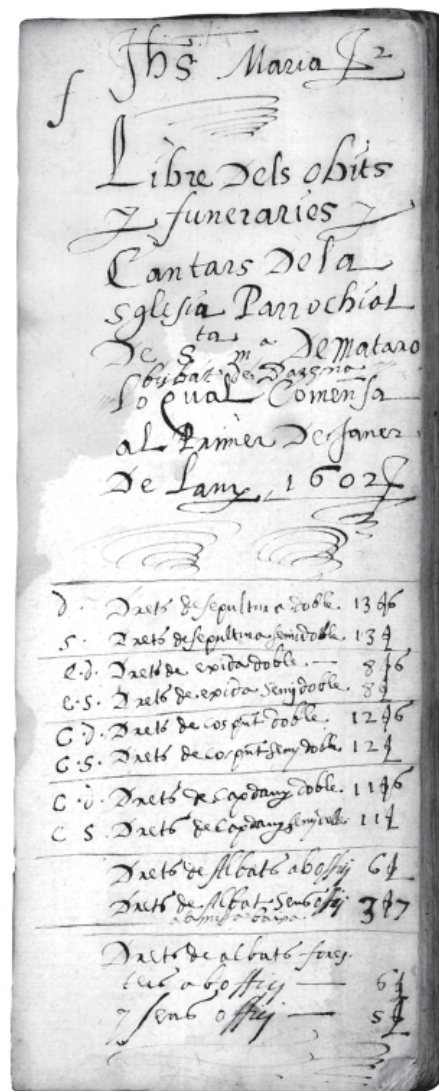 Jhs Maria
Libre Dels obits
y funeraries y
Cantars De la
sglesia Parrochial
De Sta ma De Mataro
bisbat de Barzna
Lo qual Comensa
al Primer De Janer
De Lany 1602
D. Drets de sepultura doble. 13 ẜ 6
S. Drets de sepultura semidoble 13 ẜ
e.d. Drets de exida doble — 8 ẜ 6
e.S. Drets de exida Semydoble. 8 ẜ
C.D. Drets de cos pnt doble. 12 ẜ 6
C.S. Drets de cos pnt semydoble. 12 ẜ
C.D. Drets de Capdany doble. 11 ẜ 6
C S. Drets de Capdany semidoble 11 ẜ
Drets de Albats ab offici 6 ẜ
Drets de Albats Sens offici 3 ẜ 7
Drets de albats fores
ters ab offici — 6 ẜ
y sens offici — 5 ẜ